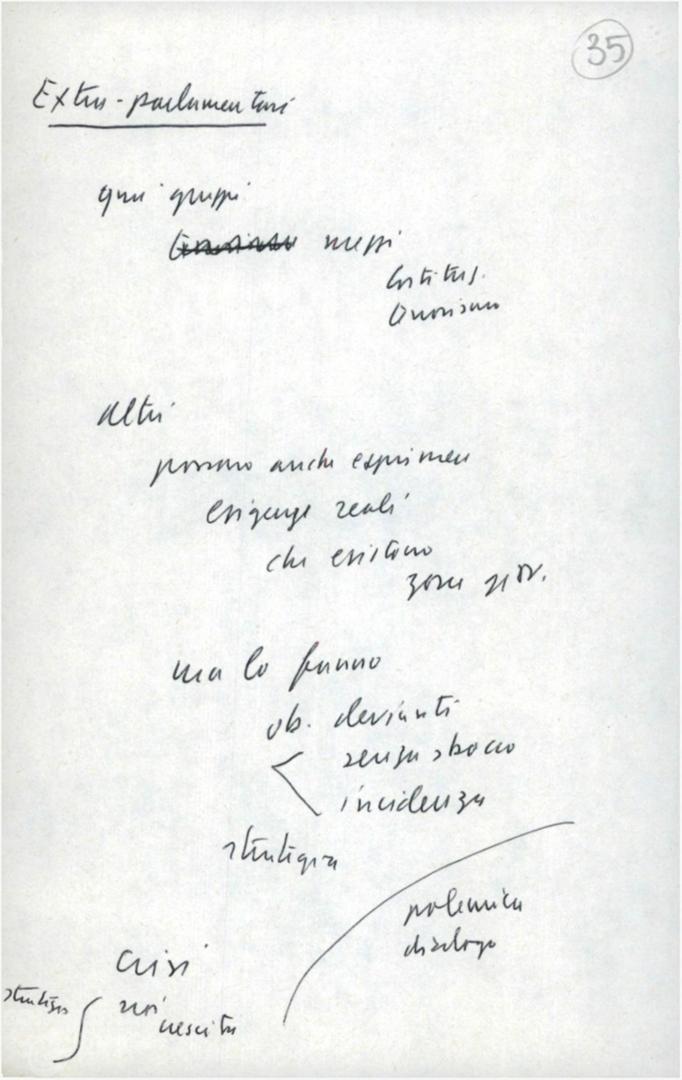 35
Extra-parlamentari
qui gruppi
messi
costituz.
altri
possono anche esprimere
esigenze reali
che esistono
zone giov.
ma lo fanno
ob. devianti
senza sbocco
incidenza
strategia
polemica
dialogo
crisi
strategia
noi
crescita